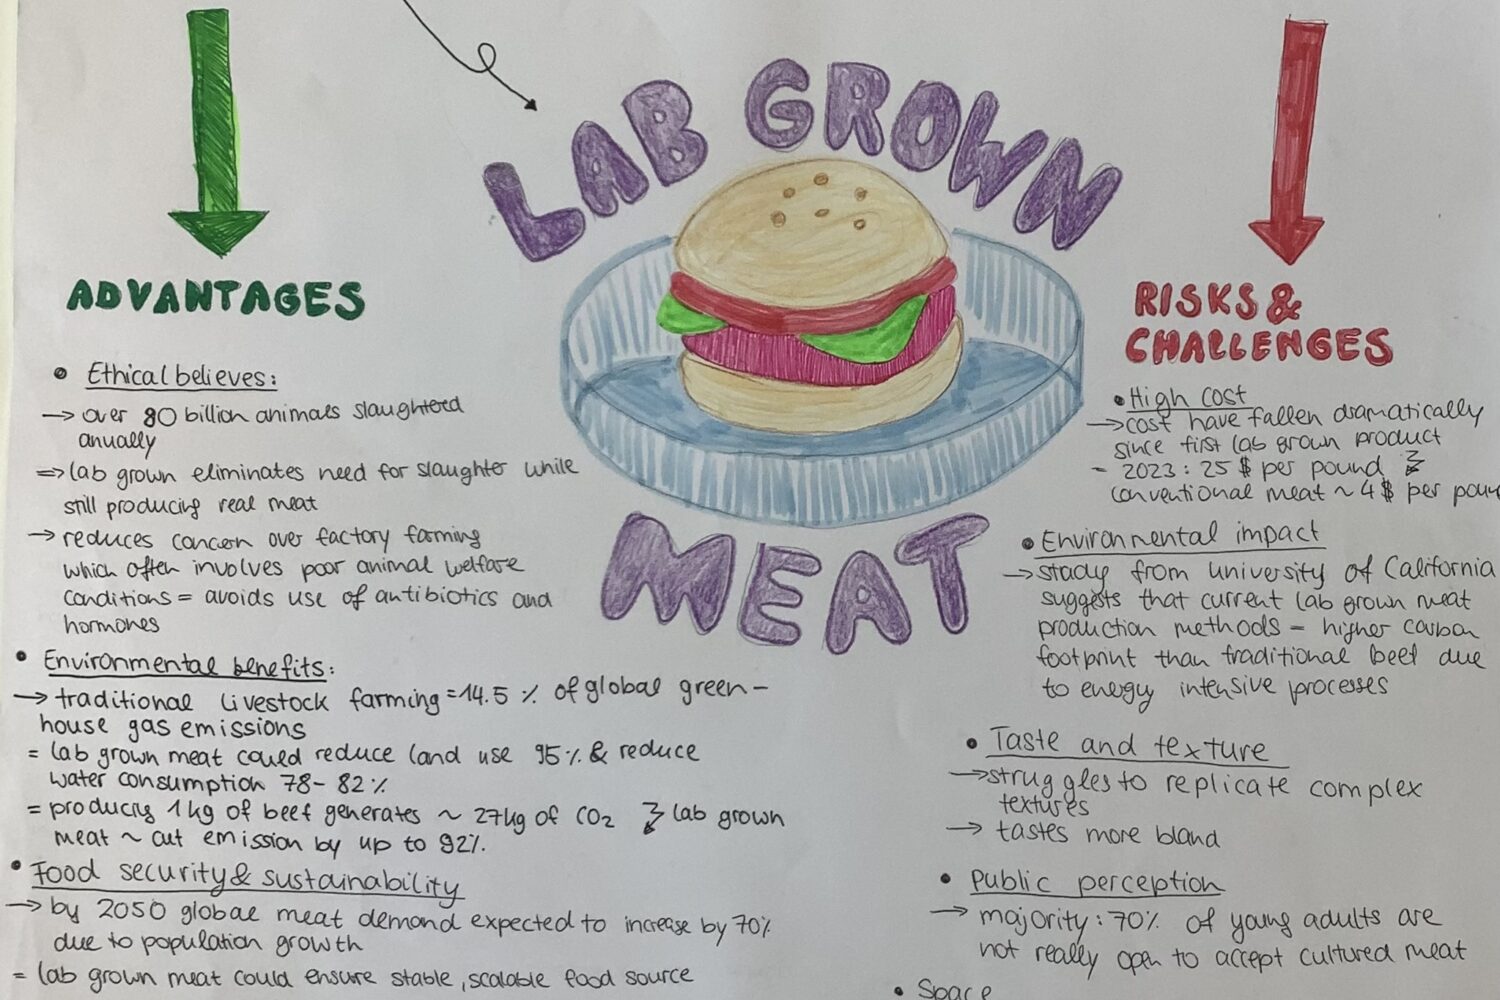 LAB GROWN
MEAT
ADVANTAGES
• Ethical believes:
→ over 80 billion animals slaughtered
anually
⇒ lab grown eliminates need for slaughter while
still producing real meat
→ reduces concern over factory farming
which often involves poor animal welfare
conditions = avoids use of antibiotics and
hormones
• Environmental benefits:
→ traditional livestock farming = 14.5 % of global green-
house gas emissions
= lab grown meat could reduce land use 95% & reduce
water consumption 78-82%
= producing 1kg of beef generates ~ 27kg of CO2 lab grown
meat ~ cut emission by up to 92%.
• Food security & sustainability
→ by 2050 global meat demand expected to increase by 70%
due to population growth
= lab grown meat could ensure stable, scalable food source
RISKS &
CHALLENGES
• High cost
→ cost have fallen dramatically
since first lab grown product
- 2023: 25 $ per pound
conventional meat ~ 4$ per poun
• Environmental impact
→ study from university of California
suggests that current lab grown meat
production methods = higher carbon
footprint than traditional beef due
to energy intensive processes
• Taste and texture
→ struggles to replicate complex
textures
→ tastes more bland
• Public perception
→ majority: 70% of young adults are
not really open to accept cultured meat
• Space